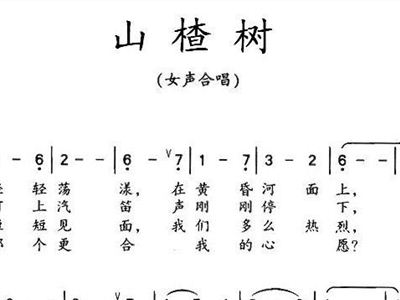 山楂树
(女声合唱)
- 6 | 2 - - 6 - ∨7 | 1 - 7 | 3 - 2 | 6 - -
轻荡漾，在黄昏河面上，
上汽笛声刚刚停下，
短见面，我们多么热烈，
个更合我的心愿？